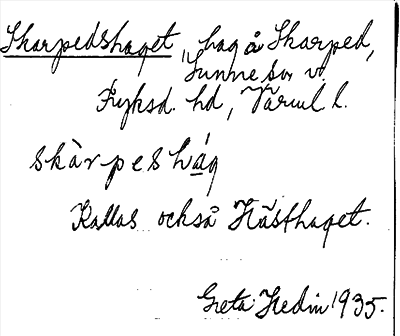 Skarpedshaget, hag å Skarped,
Sunne sn v.
Fryksd. hd, Värml l.
skàrpeshág
Kallas också Hästhaget.
Greta Hedin 1935.